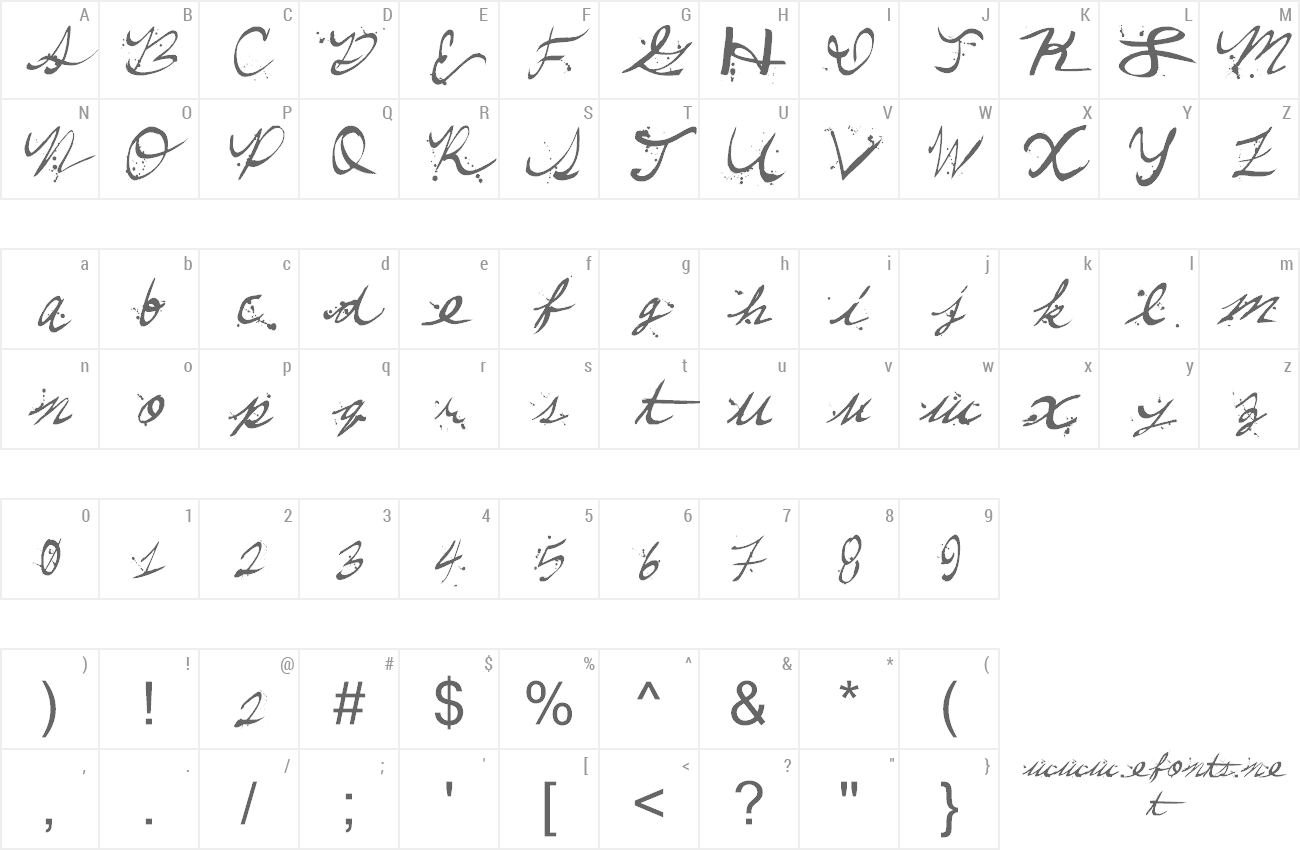 A B C D E F G H I J K L M
A B C D E F G H I J K L M
N O P Q R S T U V W X Y Z
N O P Q R S T U V W X Y Z
a b c d e f g h i j k l m
a b c d e f g h i j k l m
n o p q r s t u v w x y z
n o p q r s t u v w x y z
0 1 2 3 4 5 6 7 8 9
0 1 2 3 4 5 6 7 8 9
) ! @ # $ % ^ & * (
) ! 2 # $ % ^ & * (
, . / ; ' [ < ? " }
, . / ; ' [ < ? " }
www.efonts.ne
t